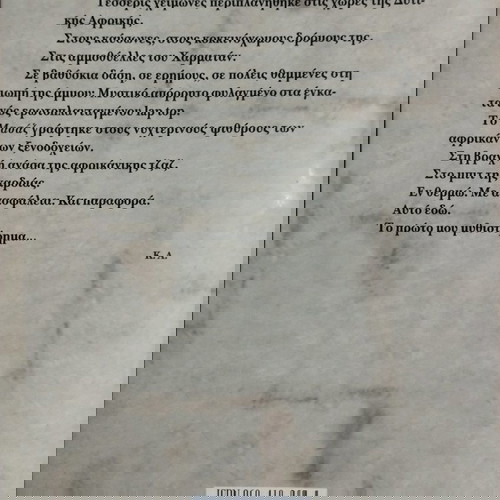 Τέσσερις χειμώνες περιπλανήθηκε στις χώρες της Δυτι-
κής Αφρικής.
Στους καύσωνες, στους κοκκινόχωμους δρόμους της.
Στις αμμοθύελλες του Χαρματάν.
Σε βαθύσκια δάση, σε ερήμους, σε πόλεις θαμμένες στη
σιωπή της άμμου. Μυστικό απόρρητο φυλαγμένο στα έγκα-
Το γράφτηκε στους νυχτερινούς ψιθύρους των
αφρικάνικων ξενοδοχείων.
Στη βραχνή ανάσα της αφρικάνικης τζαζ.
Στο μπιτ της καρδιάς.
Εν θερμώ. Με ασφάλεια. Και παραφορά.
Αυτό εδώ.
Το πρώτο μου μυθιστόρημα...
Κ. Α.